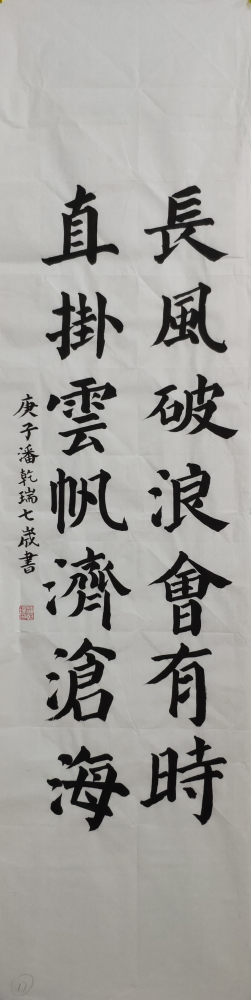 長風破浪會有時
直掛雲帆濟滄海
庚子潘乾瑞七歲書